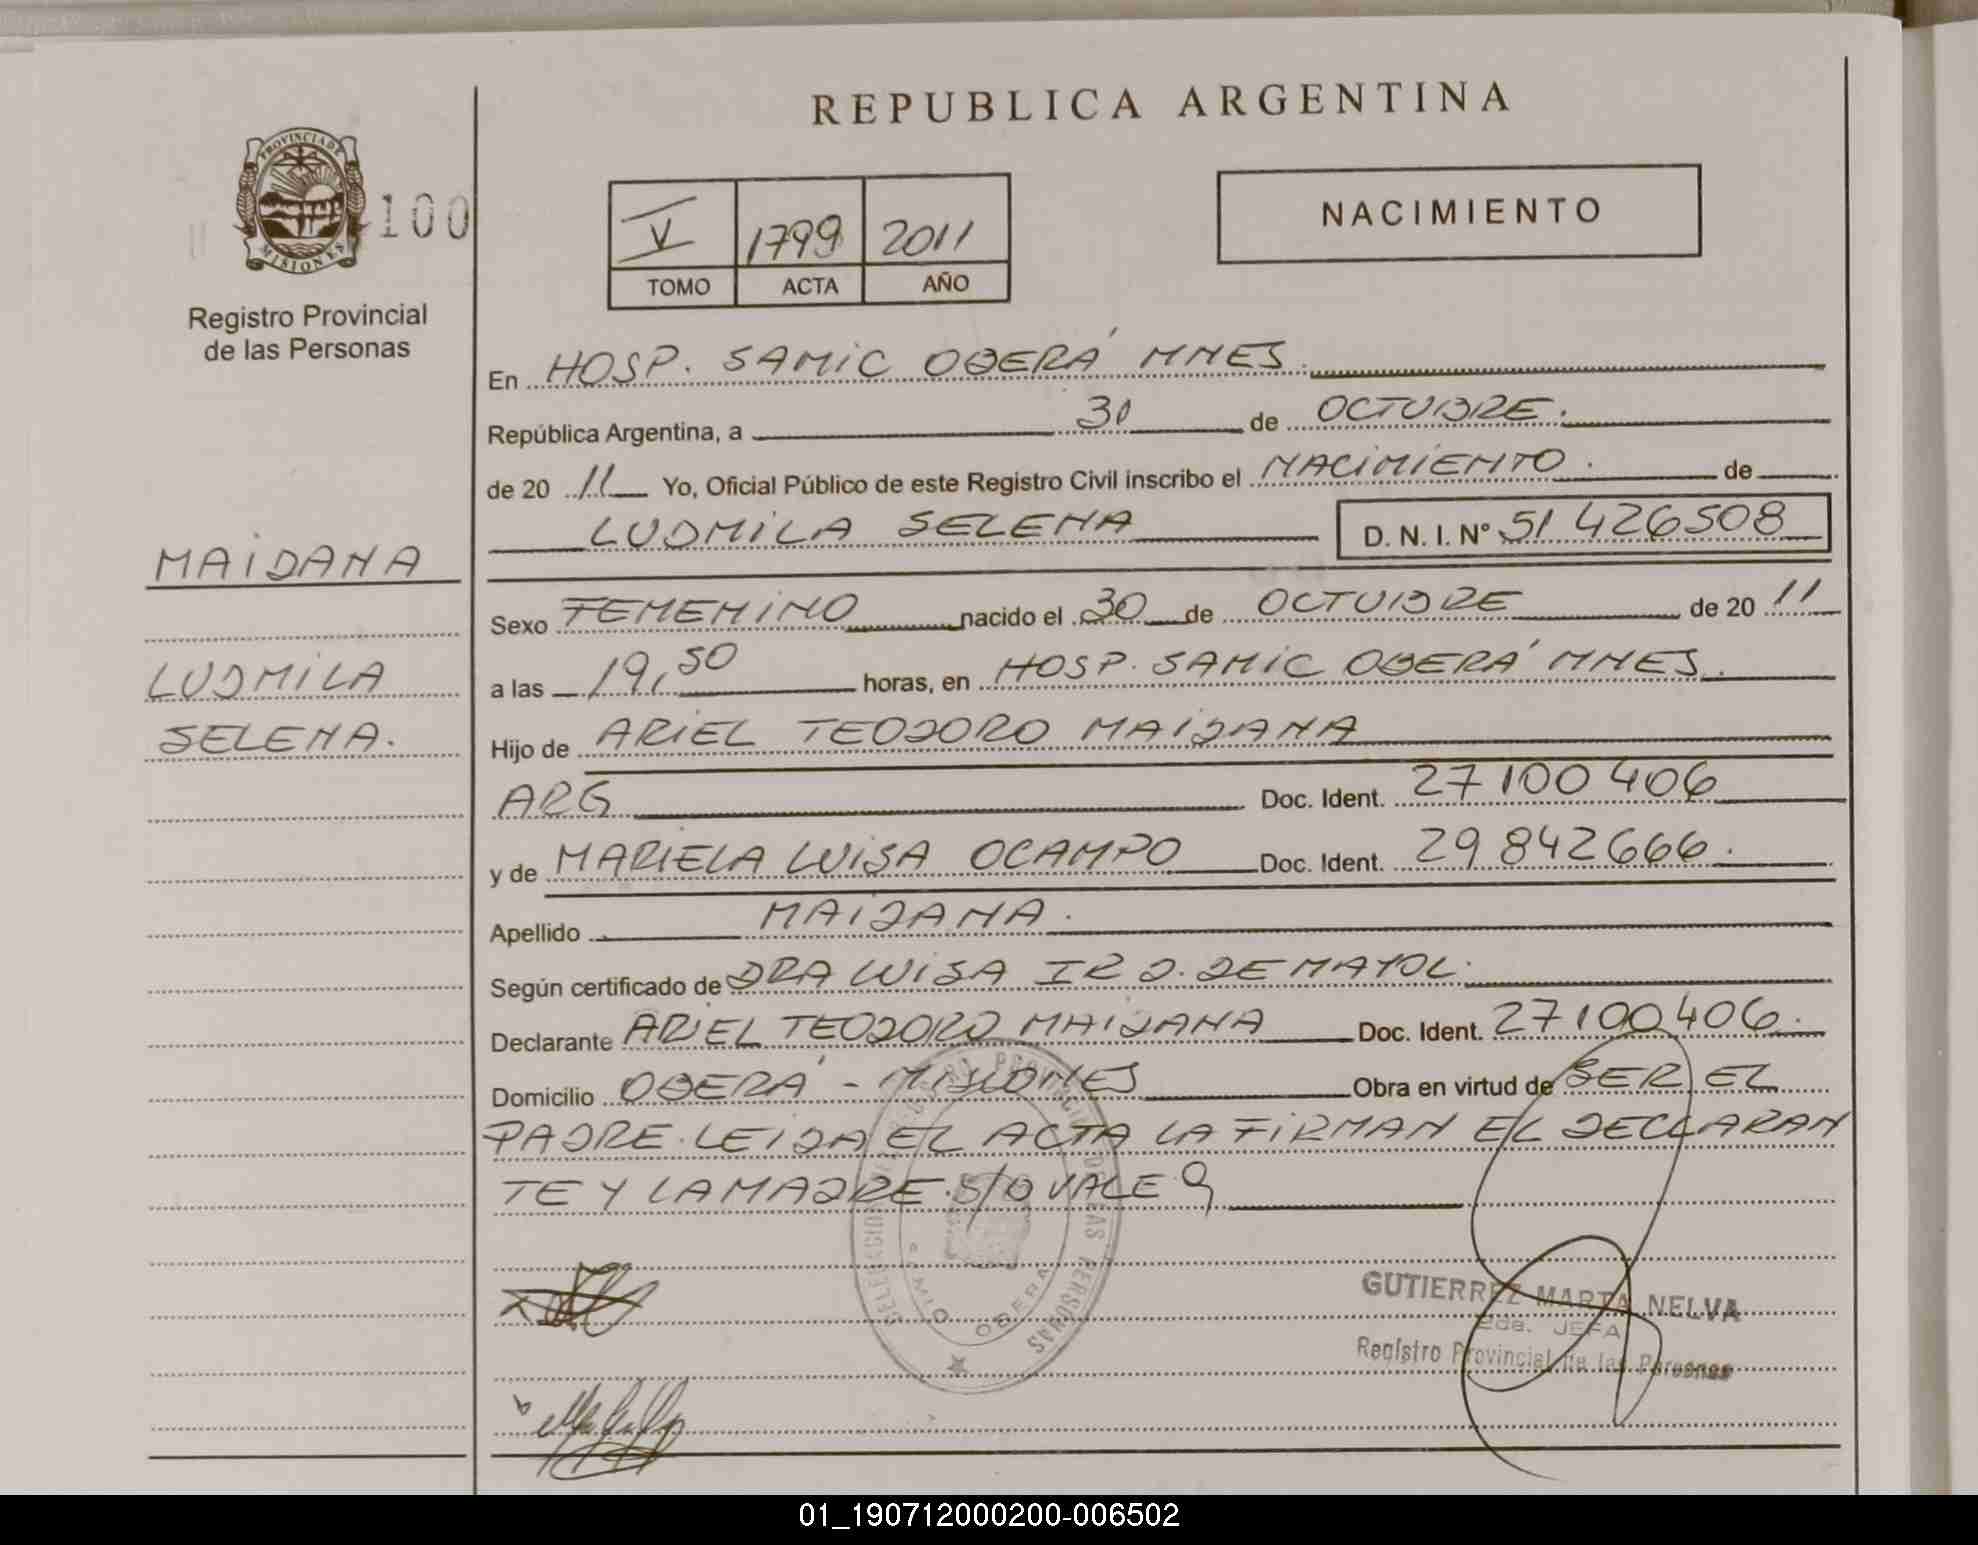 REPUBLICA ARGENTINA
PROVINCIA DE
MISIONES
100
Registro Provincial
de las Personas
V 1799 2011
TOMO ACTA AÑO
NACIMIENTO
En HOSP. SAMIC OBERÁ MNES.
República Argentina, a 30 de OCTUBRE.
de 20 11 Yo, Oficial Público de este Registro Civil inscribo el NACIMIENTO. de
LUDMILA SELENA D. N. I. Nº 51 426508
MAIDANA
LUDMILA
SELENA.
Sexo FEMENINO nacido el 30 de OCTUBRE de 20 11
a las 19,50 horas, en HOSP. SAMIC OBERÁ MNES.
Hijo de ARIEL TEODORO MAIDANA
ARG Doc. Ident. 27100406
y de MARIELA LUISA OCAMPO Doc. Ident. 29842666.
Apellido MAIDANA.
Según certificado de DRA LUISA I R D. DE MAYOL.
Declarante ARIEL TEODORO MAIDANA Doc. Ident. 27100406.
Domicilio OBERÁ - MISIONES Obra en virtud de SER EL
PADRE. LEIDA EL ACTA LA FIRMAN EL DECLARAN
TE Y LA MADRE. S/O VALE 9
PROVINCIAL DE LAS PERSONAS
DELEGACION
OBERA
GUTIERREZ MARTA NELVA
2da. JEFA
Registro Provincial de las Personas
01_190712000200-006502